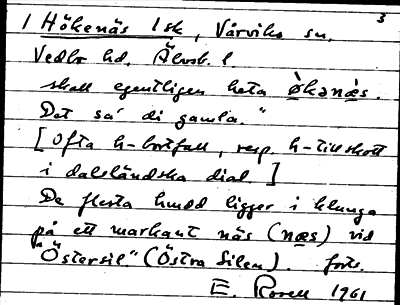 3
1 Hökenäs 1 sk, Vårviks sn.
Vedbo hd. Älvsb. l
skall egentligen heta òkənæs.
Det sa' di gamla."
[Ofta h-bortfall, resp. h-tillskott
i dalsländska dial.]
De flesta hmdd ligger i klunga
på ett markant näs (næs) vid
"Östersil." (Östra Silen). forts.
E. Rosell 1961